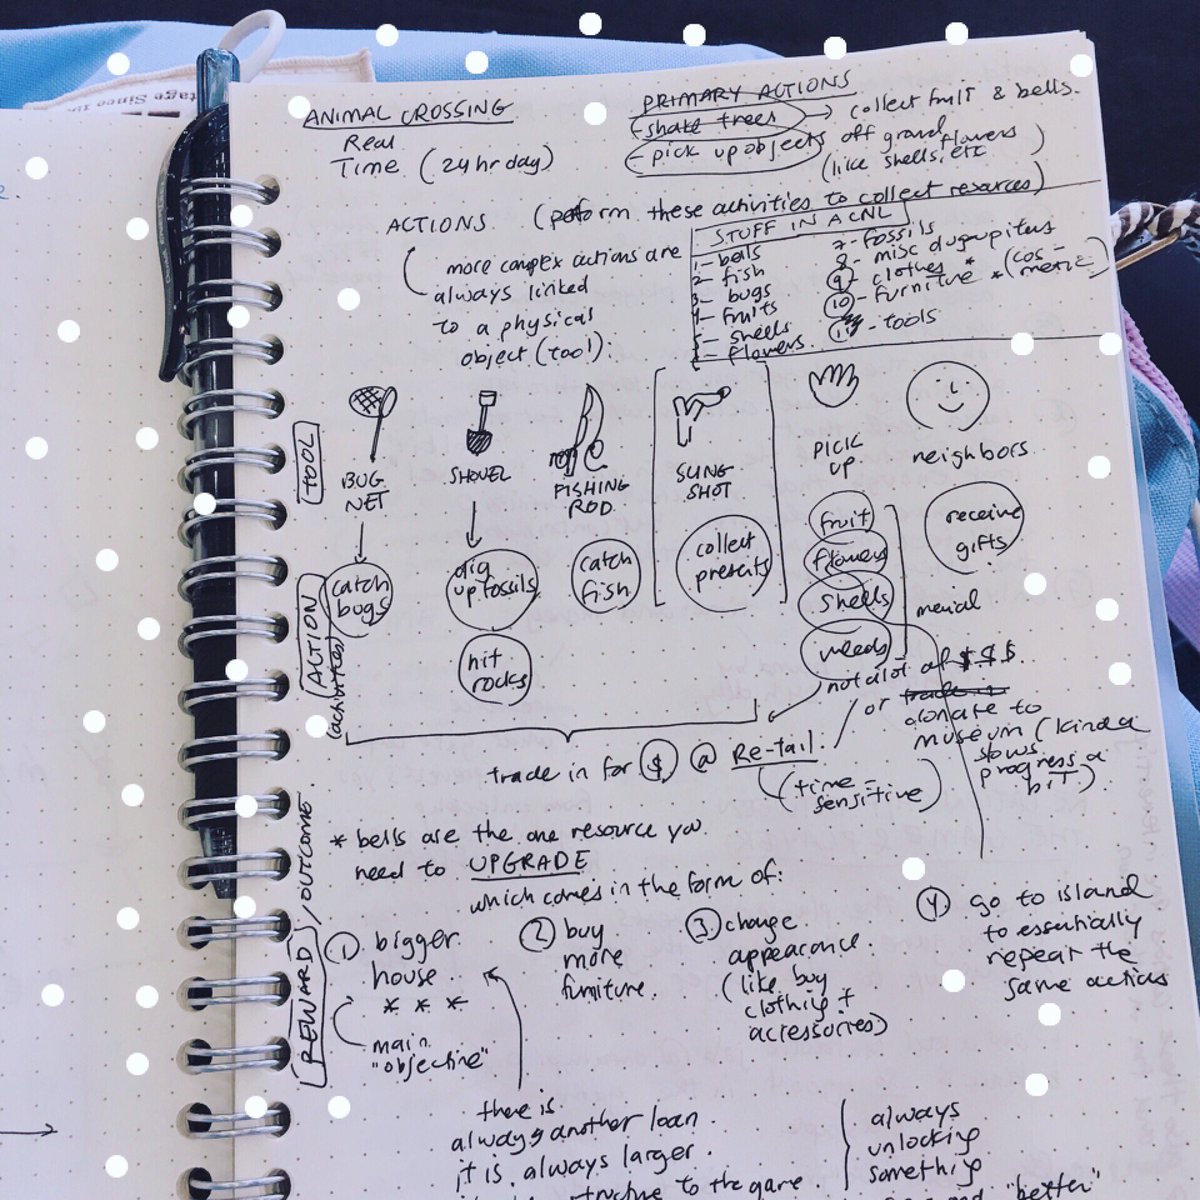 ANIMAL CROSSING
Real
Time (24 hr day)
PRIMARY ACTIONS
- shake trees → collect fruit & bells.
- pick up objects off ground
(like shells, flowers etc)
ACTIONS (perform these activities to collect resources)
more complex actions are
always linked
to a physical
object (tool):
STUFF IN ACNL
1- bells
2- fish
3- bugs
4- fruits
5- shells
- flowers
7- fossils
8- misc
9- clothes *
10- furniture * (cosmetic)
11- tools
TOOL
BUG
NET
SHOVEL
FISHING
ROD
SLING
SHOT
PICK
UP
neighbors
ACTION
(activities)
catch
bugs
dig
up fossils
hit
rocks
catch
fish
collect
presents
fruit
flowers
shells
weeds
menial
receive
gifts
not a lot of $$$
or trade in
donate to
museum (kinda
slows
progress a
bit)
trade in for $ @ Re-tail.
(time-
sensitive)
* bells are the one resource you
need to UPGRADE
which comes in the form of:
REWARD/OUTCOME
1 bigger
house
* * *
main
"objective"
2 buy
more
furniture.
3 change
appearance.
(like buy
clothing +
accessories)
4 go to island
to essentially
repeat the
same actions
there is
always another loan
it is always larger.
structure to the game.
always
unlocking
something
and "better"
tage Since 19